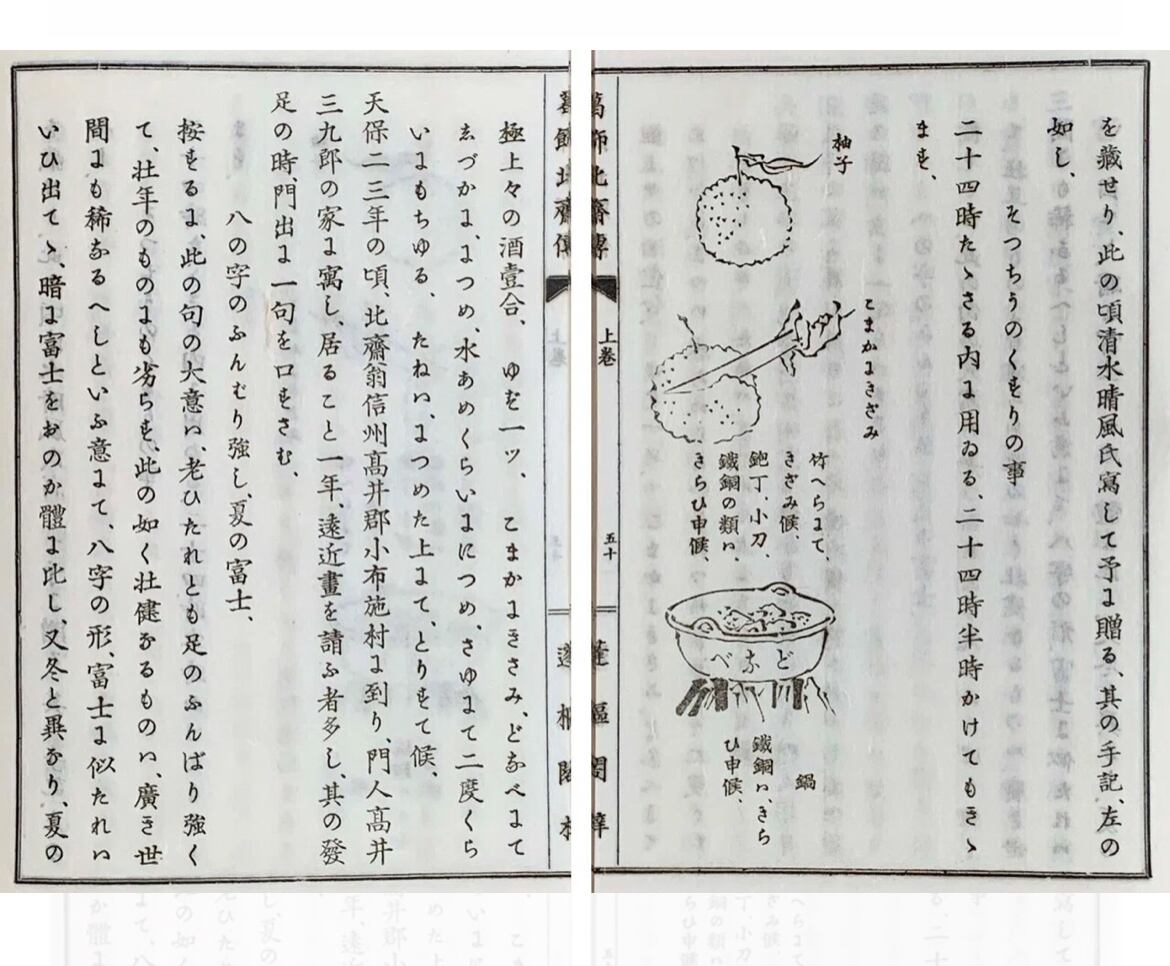 を藏せり、此の頃清水晴風氏寫して予に贈る、其の手記、左の
如し、
そつちうのくすりの事
二十四時たゝさる内に用ゐる、二十四時半時かけてもきゝ
ます、
柚子
こまかにきざみ
竹へらにて、
きざみ候、
鉋丁、小刀、
鐵銅の類ハ
きらひ申候、
どなべ
鍋
鐵銅ハ、きら
ひ申候、
葛飾北齋傳
上卷
五十
蓬樞閣梓
極上々の酒壹合、 ゆず一ッ、 こまかにきさみ、どなべにて
ゑづかに、につめ、水あめくらいににつめ、さゆにて二度くら
いにもちゆる、 たねハ、につめた上にて、とりすて候、
天保二三年の頃、北齋翁信州高井郡小布施村に到り、門人高井
三九郎の家に寓し、居ること一年、遠近畫を請ふ者多し、其の發
足の時、門出に一句を口すさむ、
八の字のふんむり強し、夏の富士、
按するに此の句の大意ハ、老ひたれとも足のふんばり強く
て、壮年のものにも劣らす、此の如く壮健なるものハ、廣き世
間にも稀なるへしといふ意にて、八字の形、富士に似たれハ
いひ出てゝ、暗に富士をおのか體に比し、又冬と異なり、夏の